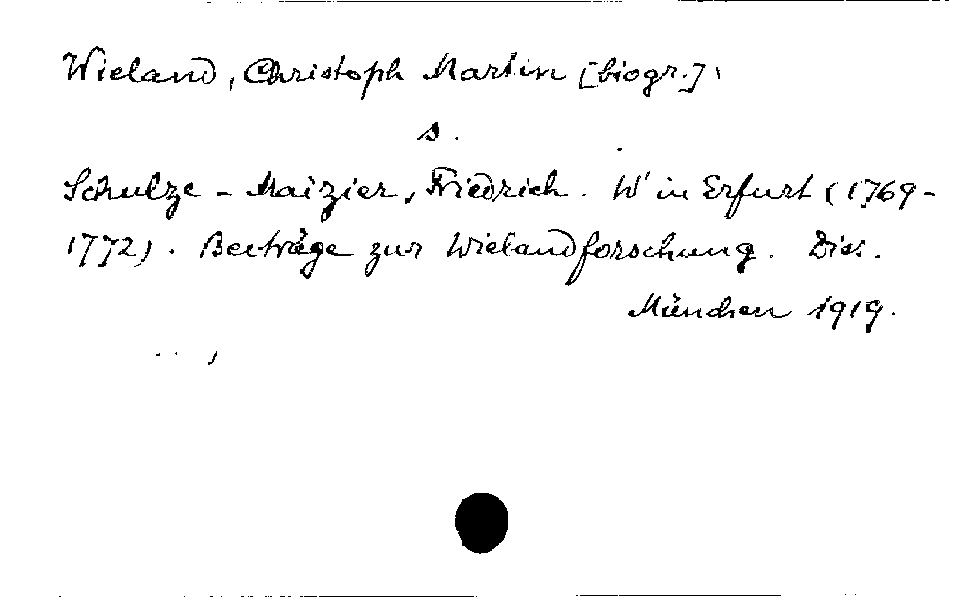 Wieland, Christoph Martin [biogr.].
s.
Schulze-Maizier, Friedrich. W' in Erfurt (1769-
1772). Beiträge zur Wielandforschung. Diss.
München 1919.